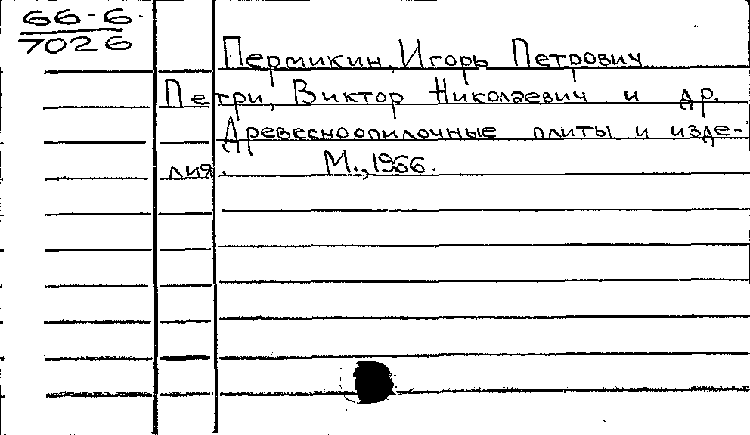 66-6.
7026
Пермикин, Игорь Петрович
Петри, Виктор Николаевич и др.
Древесноопилочные плиты и изде-
лия. М., 1966.